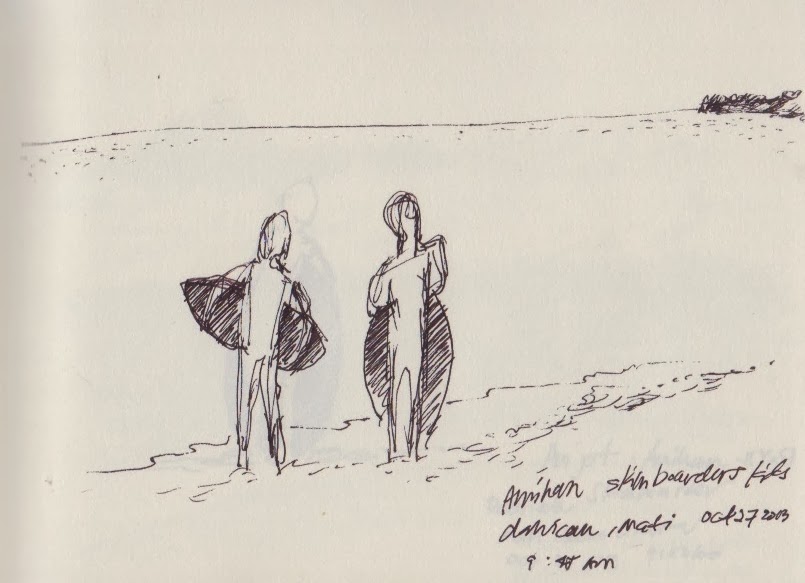 Amihan skimboarders kids
dahican, mati oct 27 2013
AM